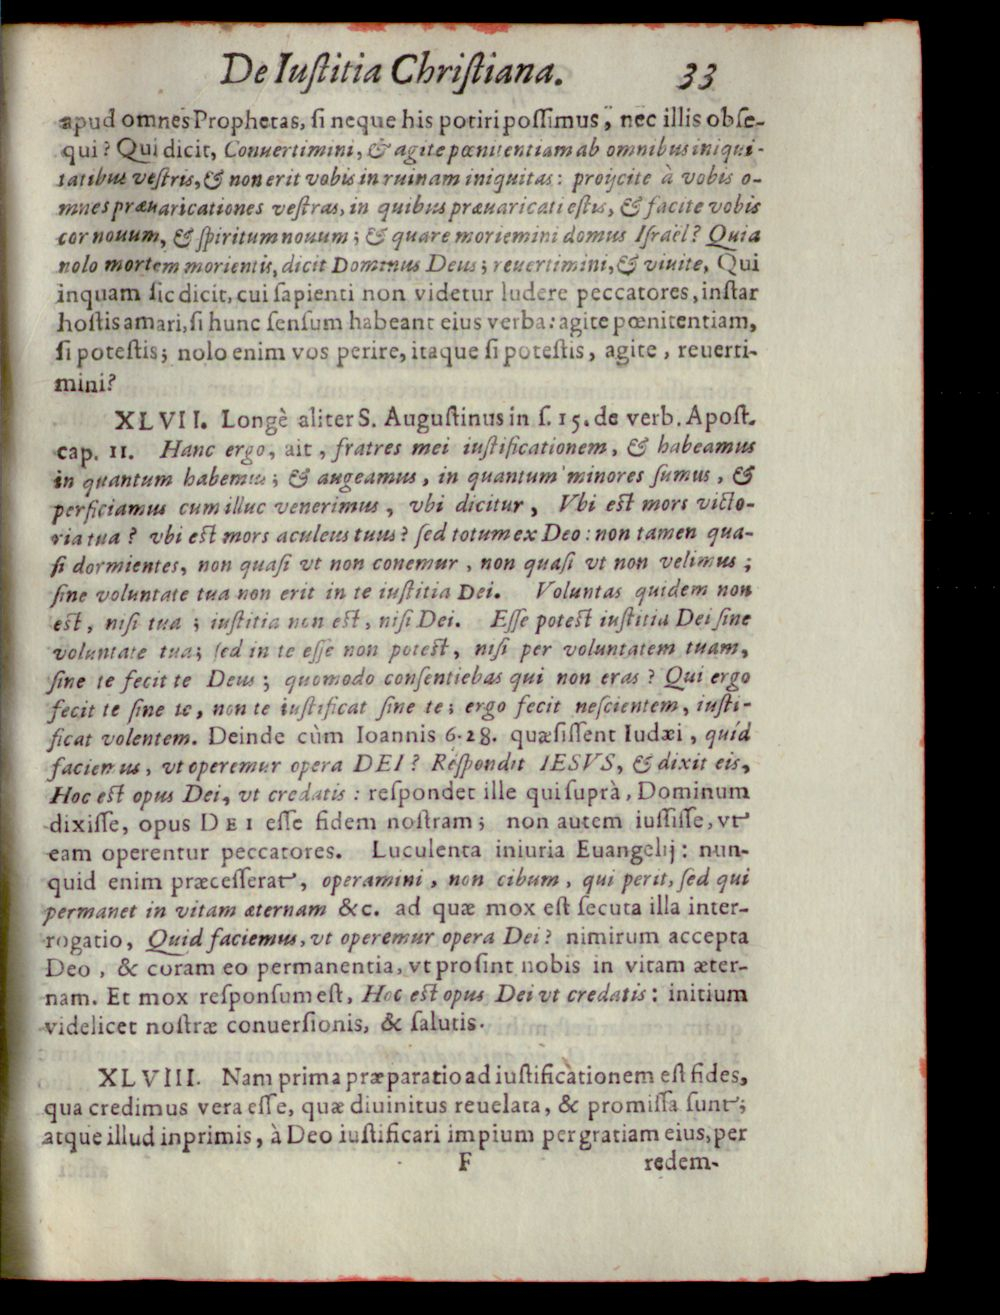 De Iustitia Christiana. 33
apud omnes Prophetas, si neque his potiri possimus, nec illis obse-
qui? Qui dicit, Conuertimini, & agite pœnitentiam ab omnibus iniqui-
tatibus vestris, & non erit vobis in ruinam iniquitas: proijcite à vobis o-
mnes præuaricationes vestras, in quibus præuaricati estis, & facite vobis
cor nouum, & spiritum nouum; & quare moriemini domus Israël? Quia
nolo mortem morientis, dicit Dominus Deus; reuertimini, & viuite, Qui
inquam sic dicit, cui sapienti non videtur ludere peccatores, instar
hostis amari, si hunc sensum habeant eius verba: agite pœnitentiam,
si potestis; nolo enim vos perire, itaque si potestis, agite, reuerti-
mini?
XLVII. Longè aliter S. Augustinus in s. 15. de verb. Apost.
cap. 11. Hanc ergo, ait, fratres mei iustificationem, & habeamus
in quantum habemus; & augeamus, in quantum minores sumus, &
perficiamus cum illuc venerimus, vbi dicitur, Vbi est mors victo-
ria tua? vbi est mors aculeus tuus? sed totum ex Deo: non tamen qua-
si dormientes, non quasi vt non conemur, non quasi vt non velimus;
sine voluntate tua non erit in te iustitia Dei. Voluntas quidem non
est, nisi tua; iustitia non est, nisi Dei. Esse potest iustitia Dei sine
voluntate tua; sed in te esse non potest, nisi per voluntatem tuam,
sine te fecit te Deus; quomodo consentiebas qui non eras? Qui ergo
fecit te sine te, non te iustificat sine te; ergo fecit nescientem, iusti-
ficat volentem. Deinde cùm Ioannis 6. 28. quæsissent Iudæi, quid
faciemus, vt operemur opera DEI? Respondit IESVS, & dixit eis,
Hoc est opus Dei, vt credatis: respondet ille qui suprà, Dominum
dixisse, opus DEI esse fidem nostram; non autem iussisse, vt
eam operentur peccatores. Luculenta iniuria Euangelij: nun-
quid enim præcesserat, operamini, non cibum, qui perit, sed qui
permanet in vitam æternam &c. ad quæ mox est secuta illa inter-
rogatio, Quid faciemus, vt operemur opera Dei? nimirum accepta
Deo, & coram eo permanentia, vt prosint nobis in vitam æter-
nam. Et mox responsum est, Hoc est opus Dei vt credatis: initium
videlicet nostræ conuersionis, & salutis.
XLVIII. Nam prima præparatio ad iustificationem est fides,
qua credimus vera esse, quæ diuinitus reuelata, & promissa sunt;
atque illud inprimis, à Deo iustificari impium per gratiam eius, per
F redem-